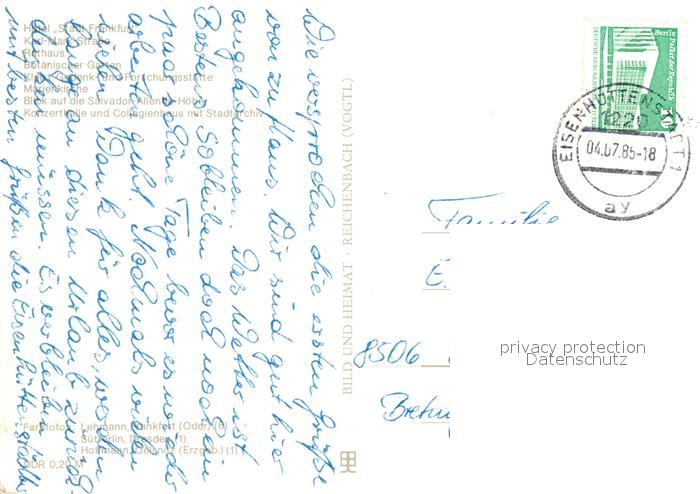 Hotel „Stadt Frankfurt“
Karl-Marx-Straße
Rathaus
Botanischer Garten
Kleist-Gedenk- und Forschungsstätte
Marienkirche
Blick auf die Salvador-Allende-Höhe
Konzerthalle und Collegienhaus mit Stadtarchiv
Wie versprochen die ersten Grüße
von zu Haus. Wir sind gut hier
angekommen. Das Wetter ist
Bestens so bleiben doch noch ein
paar schöne Tage bevor es wieder
arbeiten geht. Nochmals vielen
lieben Dank für alles, werden
lange an diesen Urlaub zurück-
denken müssen. Es verbleiben
mit besten Grüßen die Eisenhüttenstädter
Farbfotos: Lehmann, Frankfurt (Oder) (6)
Sütterlin, Dresden (1)
Hoffmann, Oelsnitz (Erzgeb.) (1)
DDR 0,20 M
BILD UND HEIMAT · REICHENBACH (VOGTL)
Berlin Palast der Republik
10
EISENHÜTTENSTADT 1
1220
04.07.85-18
ay
Familie
E.
8506
privacy protection
Datenschutz